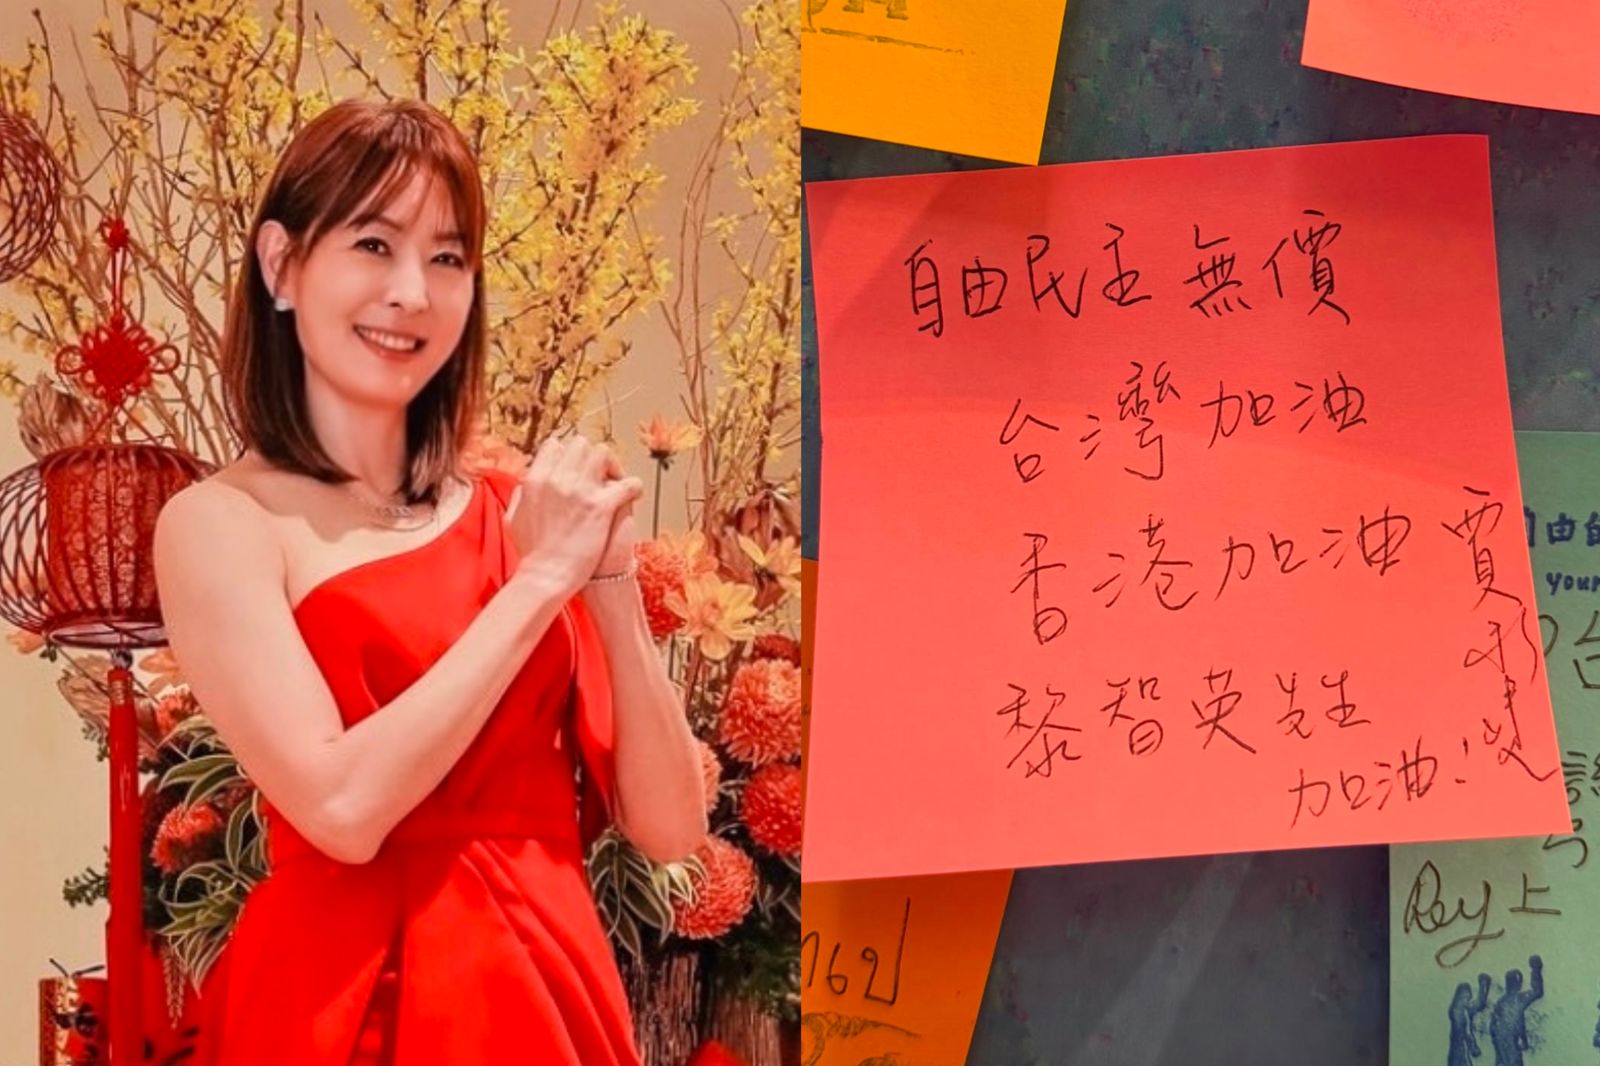 自由民主無價
台灣加油
香港加油
黎智英先生
加油!
賈永婕
由的
your
台
Rey上